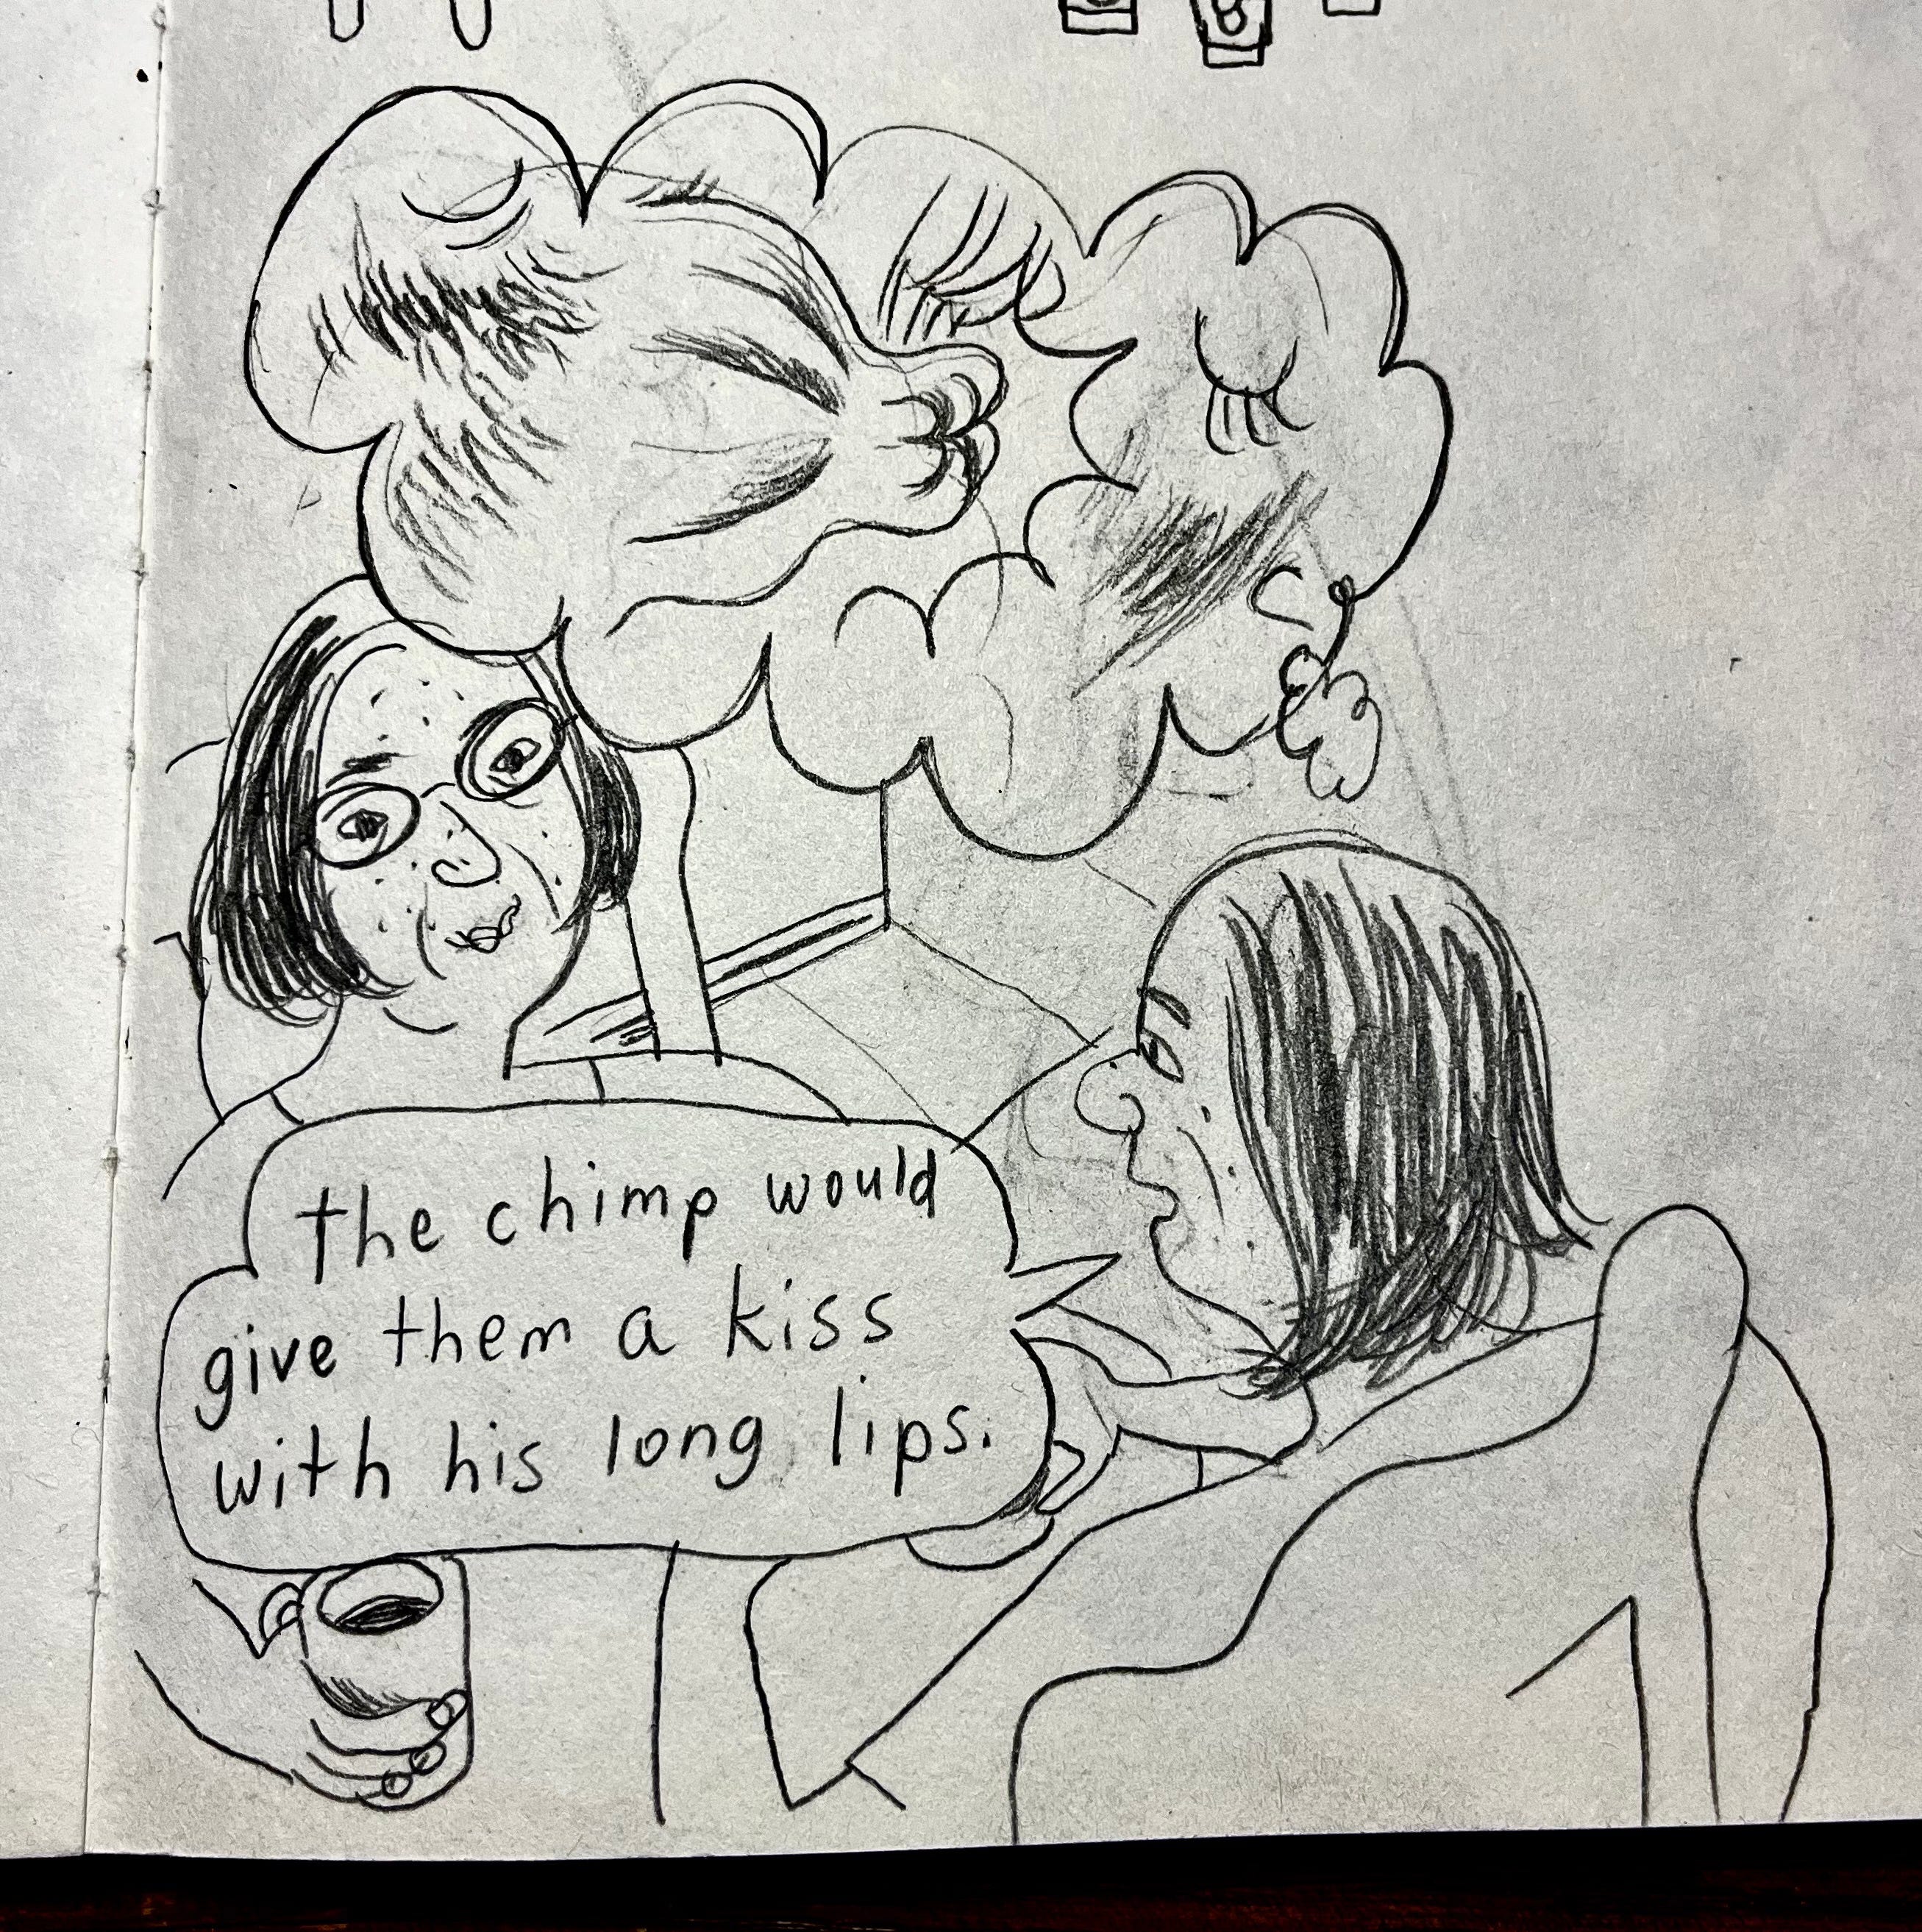 the chimp would
give them a kiss
with his long lips.